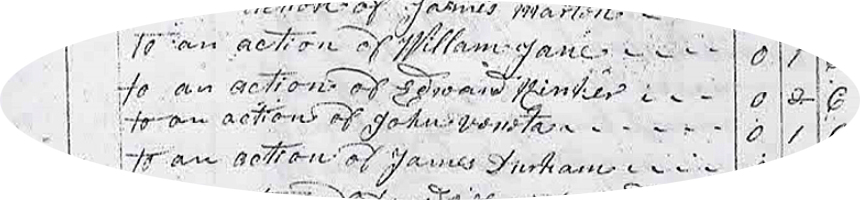 action of James Marton
to an action of Willam Jane 0 1
to an action of Edward Hinker 0 2 6
to an action of John Veneta 0 1
to an action of James Durham